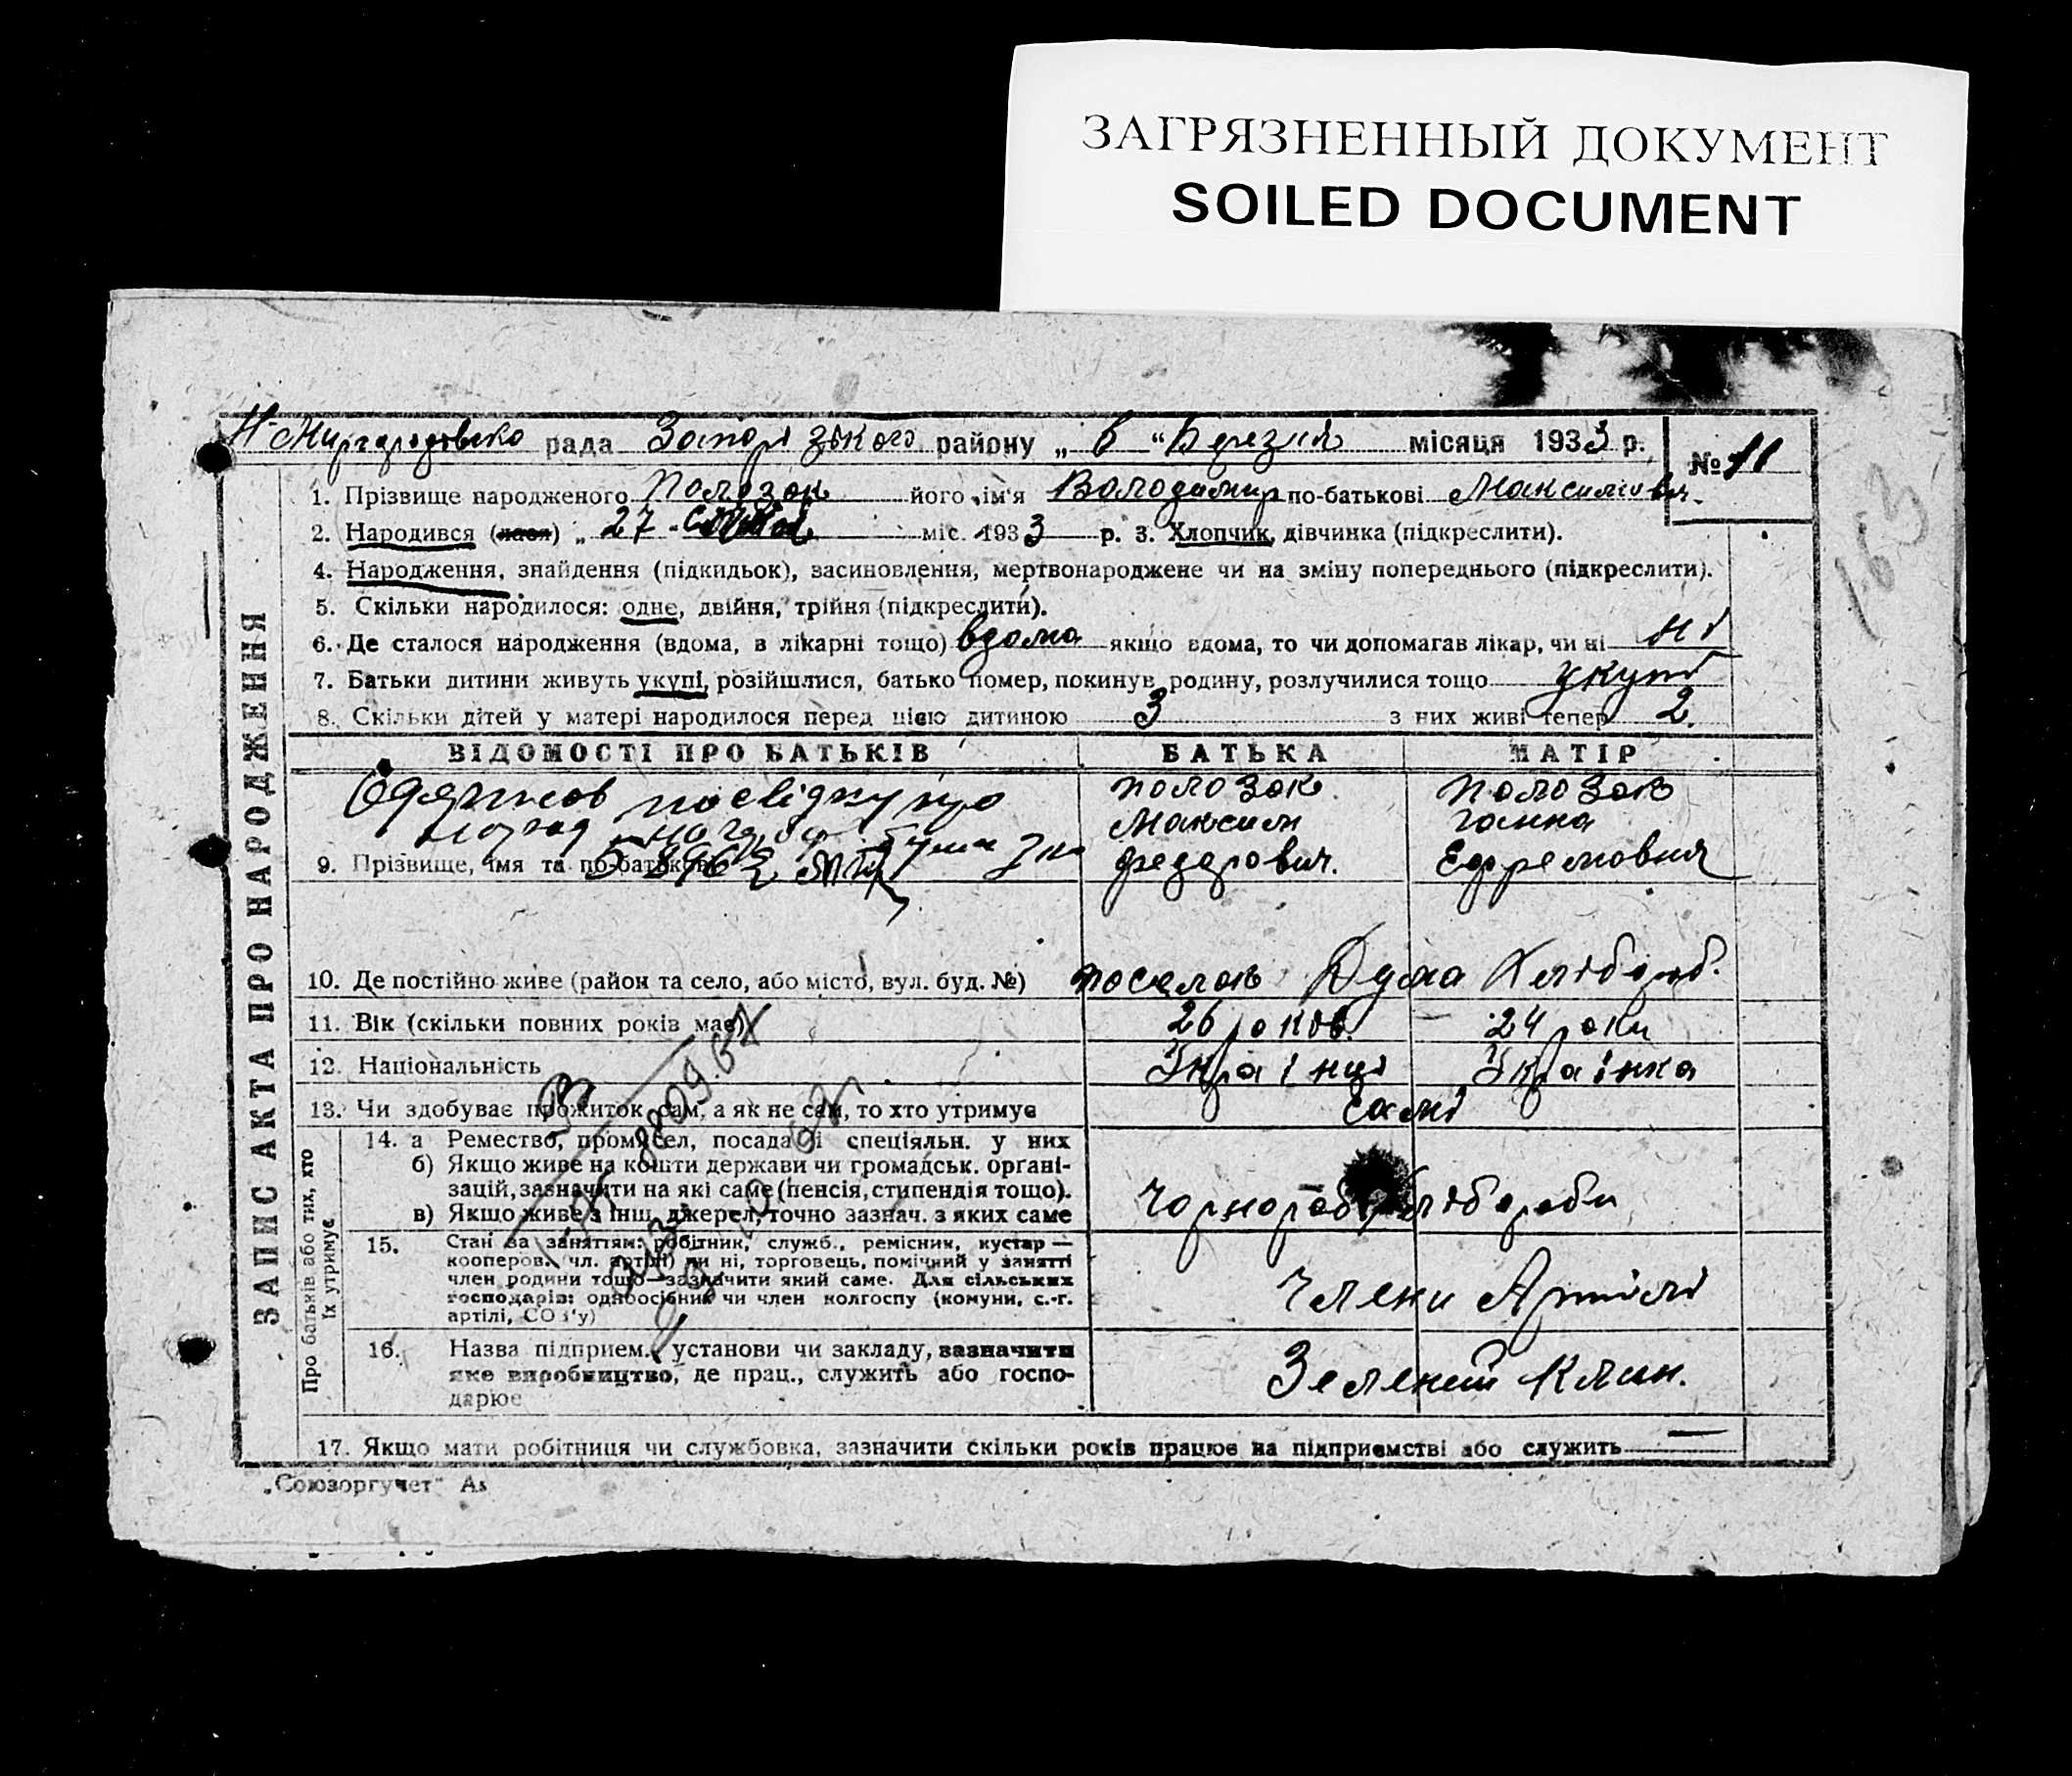 ЗАГРЯЗНЕННЫЙ ДОКУМЕНТ
SOILED DOCUMENT
Н-Миргородсько рада Запорізького району „ 6 “ Березня місяця 1933 р. № 11
1. Прізвище народженого Полозок його ім'я Володимир по-батькові Максимович.
2. Народився (лася) „ 27 міс. 1933 р. 3. Хлопчик, дівчинка (підкреслити).
4. Народження, знайдення (підкидьок), засиновлення, мертвонароджене чи на зміну попереднього (підкреслити).
5. Скільки народилося: одне, двійня, трійня (підкреслити).
6. Де сталося народження (вдома, в лікарні тощо) вдома якщо вдома, то чи допомагав лікар, чи ні ні
7. Батьки дитини живуть укупі, розійшлися, батько помер, покинув родину, розлучилися тощо укупі
8. Скільки дітей у матері народилося перед цією дитиною 3 з них живі тепер 2.
163
ЗАПИС АКТА ПРО НАРОДЖЕННЯ
ВІДОМОСТІ ПРО БАТЬКІВ БАТЬКА МАТІР
Полозок Полозок
Максим Ганна
9. Прізвище, імя та по-батькові Федорович. Ефремовна
10. Де постійно живе (район та село, або місто, вул. буд. №) поселок Дума Хлібороб.
11. Вік (скільки повних років має) 26 років. 24 роки
12. Національність Українці Українка
13. Чи здобуває прожиток сам, а як не сам, то хто утримує самі
Про батьків або тих, хто їх утримує
14. а Ремество, промисел, посада і спеціяльн. у них
б) Якщо живе на кошти держави чи громадськ. органі-
зацій, зазначити на які саме (пенсія, стипендія тощо).
в) Якщо живе з інш. джерел, точно зазнач. з яких саме
хлібороби
15. Стан за заняттям: робітник, служб., ремісник, кустар —
кооперов. чл. артілі) чи ні, торговець, помічний у занятті
член родини тощо—зазначити який саме. Для сільських
господарів: одноосібник чи член колгоспу (комуни, с.-г.
артілі, СОЗ'у)
Члени Артілі
16. Назва підприєм., установи чи закладу, зазначити
яке виробництво, де прац., служить або госпо-
дарює
Зелений Клин.
17. Якщо мати робітниця чи службовка, зазначити скільки років працює на підприємстві або служить —
„Союзоргучет"